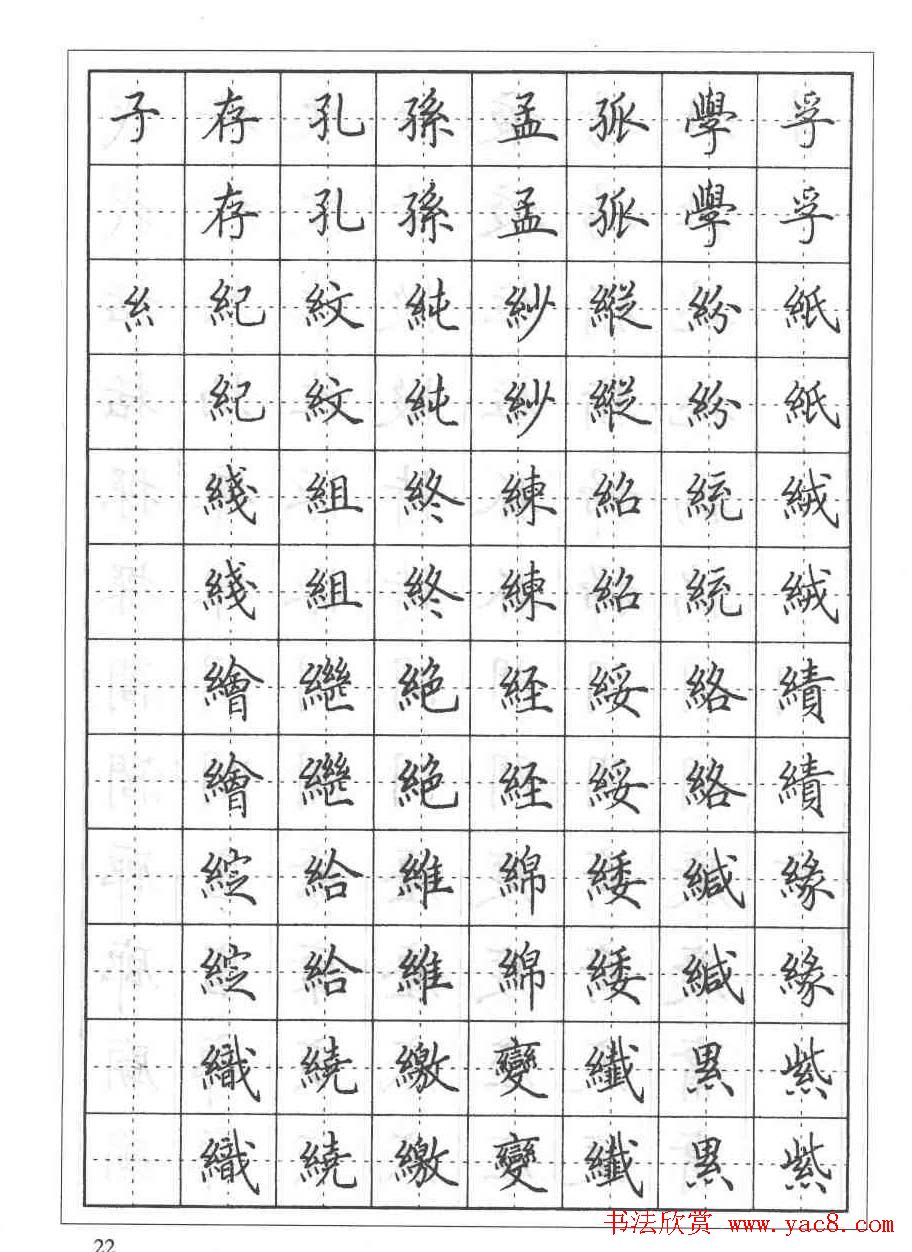 子 存 孔 孫 孟 孤 學 孚
存 孔 孫 孟 孤 學 孚
糹 紀 紋 純 紗 縱 紛 紙
紀 紋 純 紗 縱 紛 紙
綫 組 終 練 紹 統 絨
綫 組 終 練 紹 統 絨
繪 繼 絕 經 綏 絡 績
繪 繼 絕 經 綏 絡 績
綻 給 維 綿 綾 緘 緣
綻 給 維 綿 綾 緘 緣
織 繞 繳 變 纖 累 紫
織 繞 繳 變 纖 累 紫
书法欣赏 www.yac8.com
22